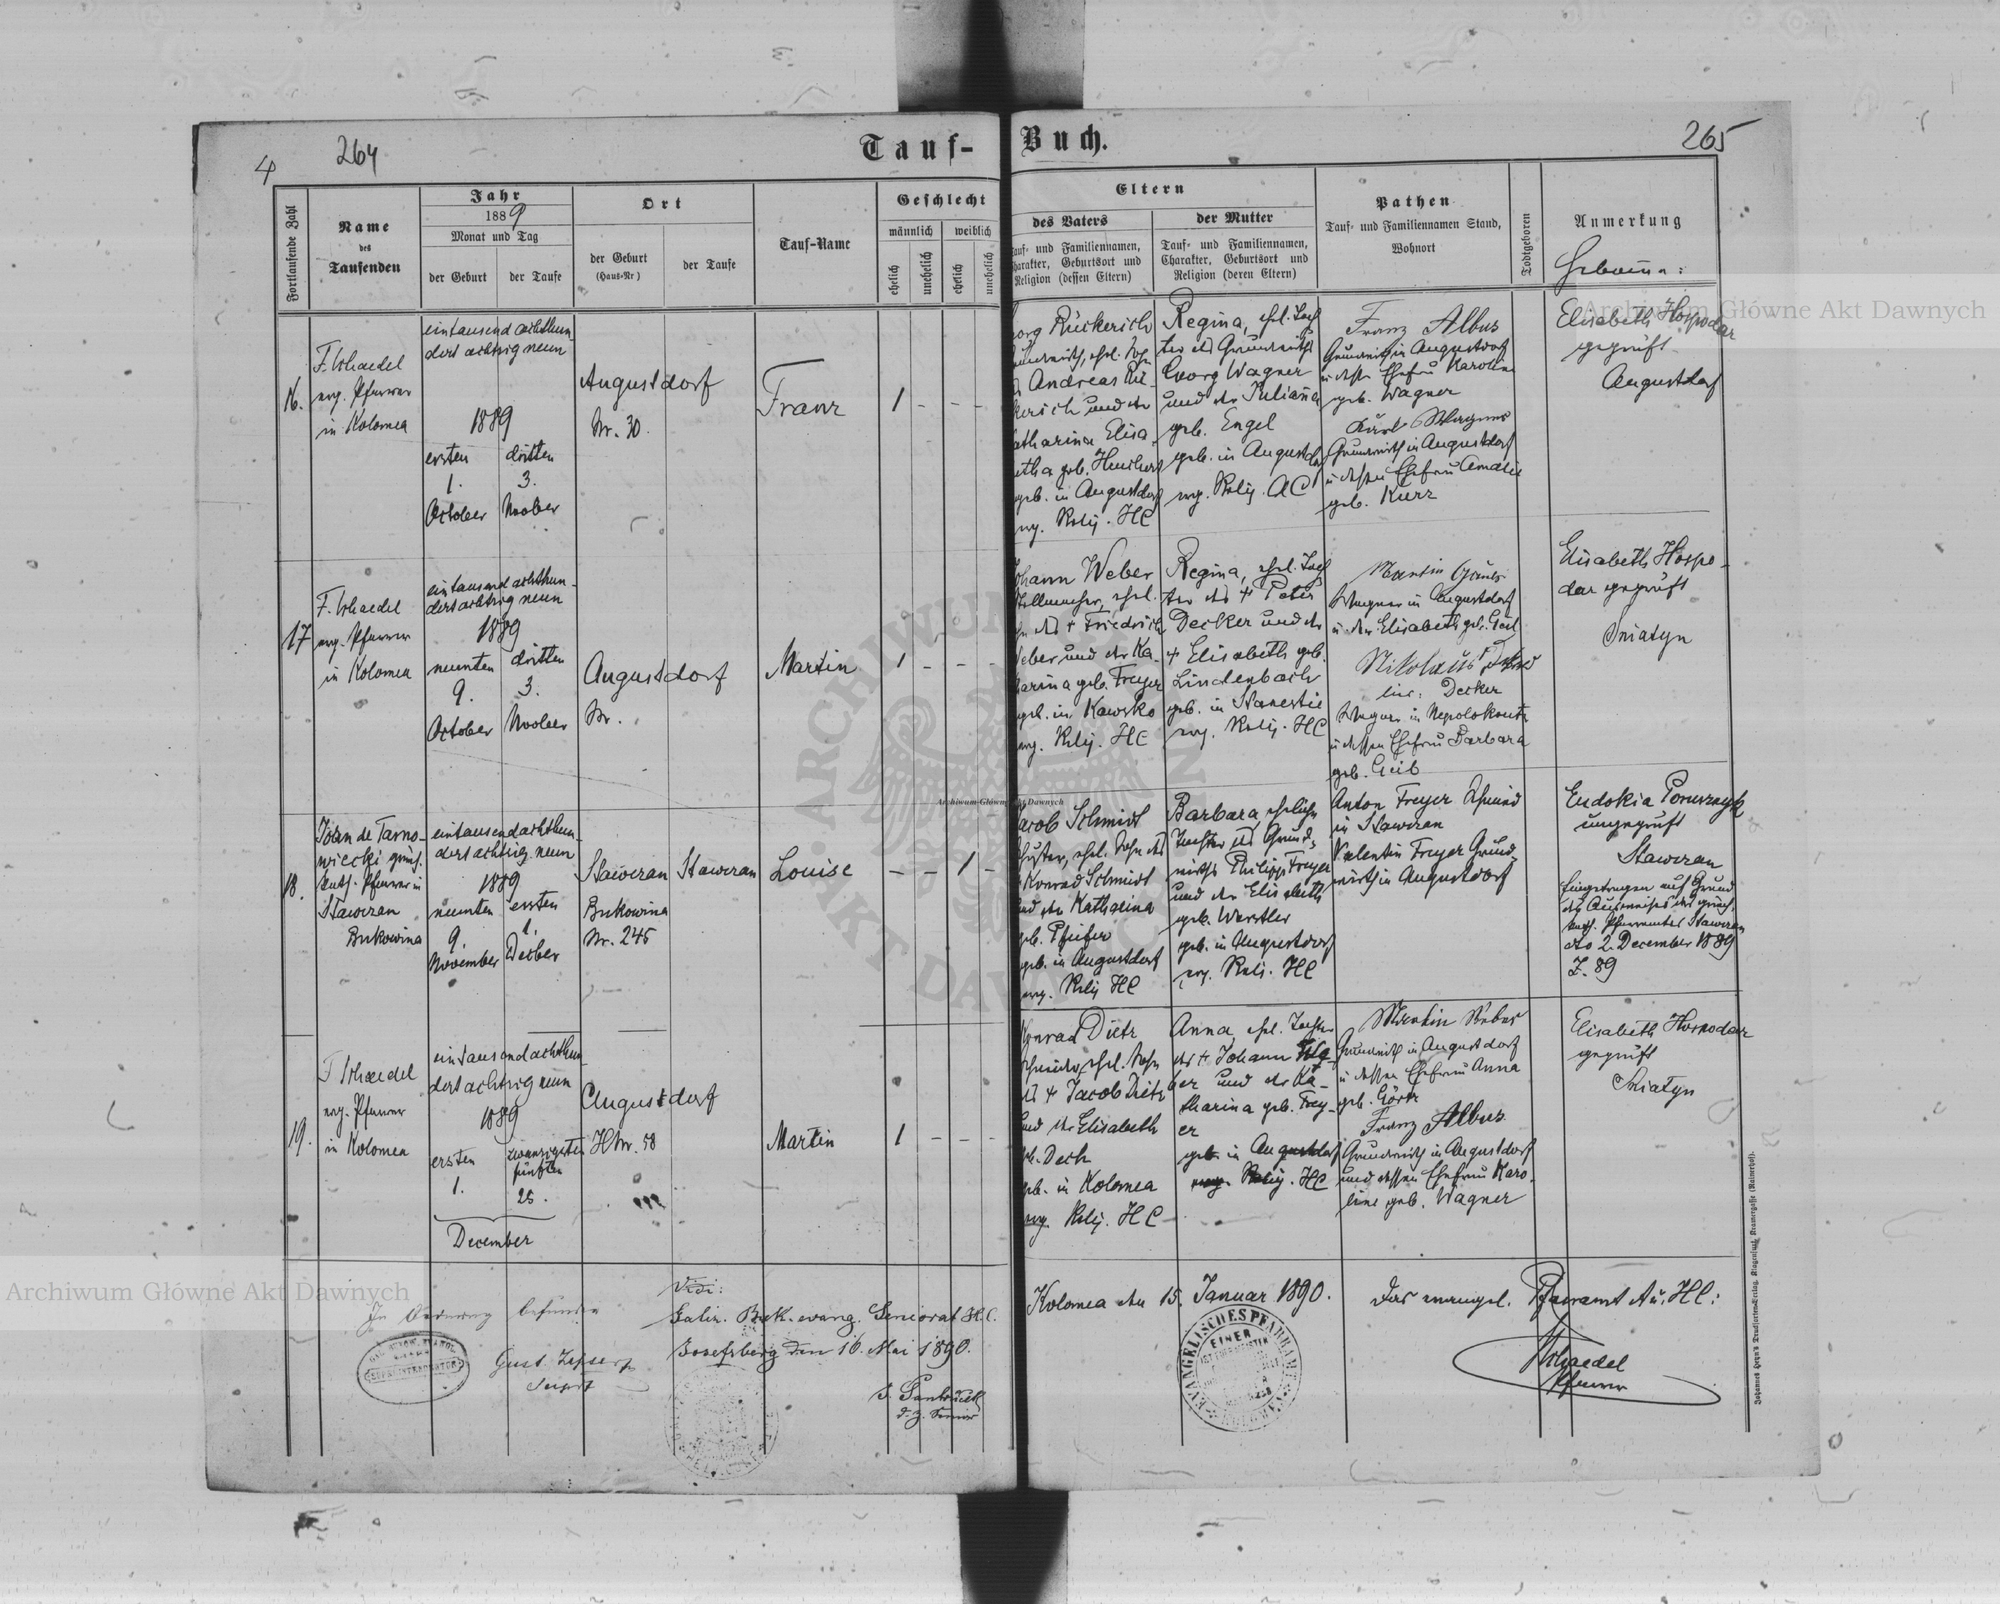 4
264
Tauf-
Buch.
265
Fortlaufende Zahl
Name
des
Taufenden
Jahr
1889
Monat und Tag
der Geburt
der Taufe
Ort
der Geburt
(Haus-Nr)
der Taufe
Tauf-Name
Geschlecht
männlich
weiblich
ehelich
unehelich
ehelich
unehelich
Eltern
des Vaters
Tauf- und Familiennamen,
Charakter, Geburtsort und
Religion (dessen Eltern)
der Mutter
Tauf- und Familiennamen,
Charakter, Geburtsort und
Religion (deren Eltern)
Pathen
Tauf- und Familiennamen Stand,
Wohnort
Todtgeboren
Anmerkung
16.
F. Schaedel
evg. Pfarrer
in Kolomea
eintausend achthun
dert achtzig neun
1889
ersten
1.
October
dritten
3.
Novber
Augustdorf
Nr. 30.
Franz
1 - - -
org Rückerich
Grundwirth, ehel. Sohn
Andreas Rü-
kerich und der
atharina Elisa-
etha geb.
geb. in Augustdorf
evg. Relig. HC
Regina, ehel. Toch
ter des Grundwirths
Georg Wagner
und der Juliana
geb. Engel
geb. in Augustdo
evg. Relig. AC
Franz Albus
Grundwirth in Augustdorf
u dessen Ehefrau Karoline
geb. Wagner
Karl Wagner
Grundwirth in Augustdorf
u dessen Ehefrau Amalie
geb. Kurz
Elisabeth Hospodar
geprüft
Augustdorf
17
F. Schaedel
evg. Pfarrer
in Kolomea
eintausend achthun-
dert achtzig neun
1889
neunten
9.
October
dritten
3.
Novber
Augustdorf
Nr.
Martin
1 - - -
ohann Weber
ehel.
des + Friedrich
Weber und der Ka-
tarina geb. Freyer
geb. in Kawsko
evg. Relig. HC
Regina, ehel. Toch
ter des + Peter
Decker und der
+ Elisabeth geb.
Lindenbach
geb. in Stanestie
evg. Relig. HC
Martin
Wagner in Augustdorf
u der Elisabeth geb. Geib
Nikolaus
Decker
Wagner in Nepolokoutz
u dessen Ehefrau Barbara
geb. Geib
Elisabeth Hospo-
dar geprüft
Sniatyn
18.
Joan de Tarno-
wiecki griech.
kath. Pfarrer in
Stawczan
Bukowina
eintausend achthun-
dert achtzig neun
1889
neunten
9.
November
ersten
1.
Decber
Stawczan
Bukowina
Nr. 245
Stawczan
Louise
- - 1 -
acob Schmidt
Schuster, ehel. Sohn des
Konrad Schmidt
und der Katharina
geb. Pfeifer
geb. in Augustdorf
evg. Relig HC
Barbara, eheliche
Tochter des Grund-
wirths Philipp Freyer
und der Elisabeth
geb. Werstler
geb. in Augustdorf
evg. Relig. HC
Anton Freyer Schmied
in Stawczan
Valentin Freyer Grund-
wirth in Augustdorf
Eudokia
ungeprüft
Stawczan
Eingetragen auf Grund
des Ausweises des griech.
kath. Pfarramtes Stawczan
dto 2. December 1889
Z. 89
19.
F Schaedel
evg. Pfarrer
in Kolomea
eintausend achthun-
dert achtzig neun
1889
ersten
1.
zwanzigsten
fünften
25.
December
Augustdorf
HNr. 58
Martin
1 - - -
Konrad Dietz
ehel. Sohn
des + Jacob Dietz
und der Elisabeth
geb. Dech
geb. in Kolomea
evg. Relig. HC
Anna, ehel. Tochter
des + Johann
er und der Ka-
tharina geb. Frey-
er
geb. in Augustdorf
evg. Relig. HC
Martin Weber
Grundwirth in Augustdorf
u dessen Ehefrau Anna
geb. Görtz
Franz Albus
Grundwirth in Augustdorf
und dessen Ehefrau Karo-
line geb. Wagner
Elisabeth Hospodar
geprüft
Sniatyn
In Ordnung befunden
Vidi:
Galiz. Buk. evang. Seniorat H.C.
Josefsberg den 16. Mai 1890.
d. z. Senior
Kolomea den 15. Januar 1890.
Das evangel. Pfarramt A. u. HC:
Schaedel
Pfarrer
EVANGELISCHES PFARRAMT
Archiwum Główne Akt Dawnych
Archiwum Główne Akt Dawnych
Archiwum Główne Akt Dawnych
ARCHIWUM
AKT DAWNYCH